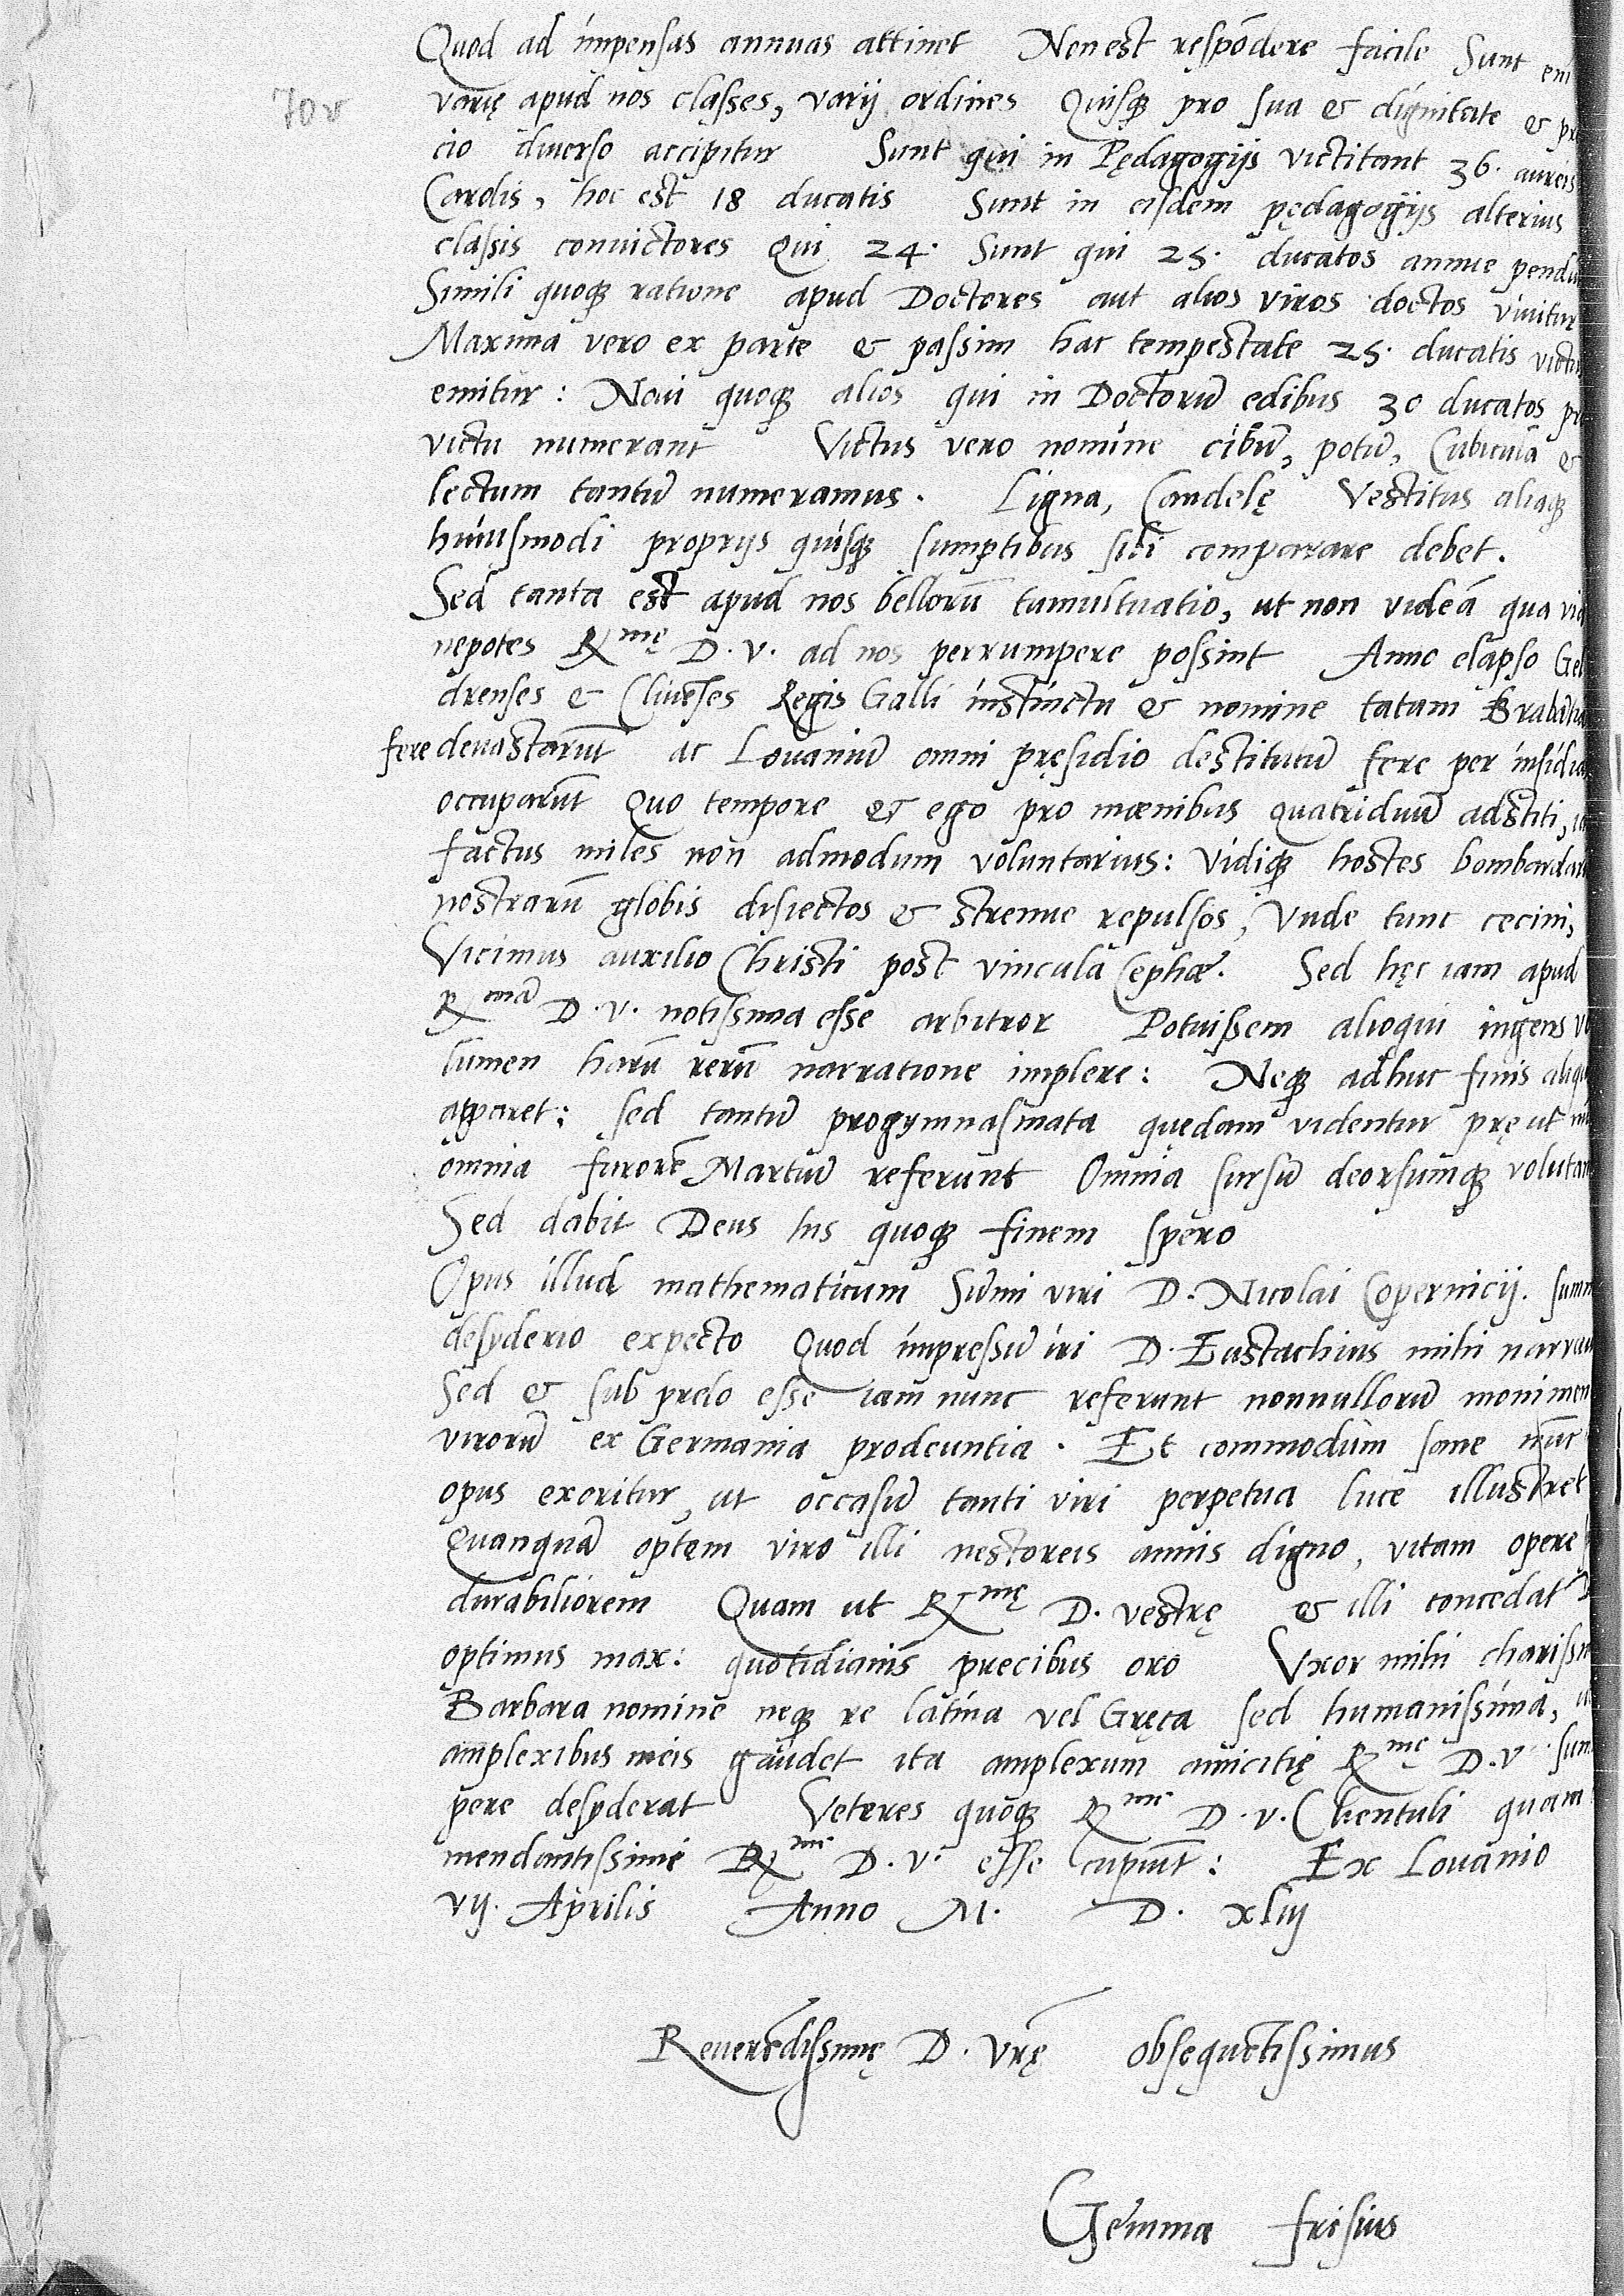 Quod ad impensas annuas attinet Non est respōdere facile Sunt eni
70v
varię apud nos classes, varij ordines Quisq; pro sua & dignitate & pre
cio diuerso accipitur Sunt qui in Pędagogijs victitant 36. aureis
Carolis, hoc est 18 ducatis Sunt in eisdem pędagogijs alterius
classis conuictores qui 24. Sunt qui 25. ducatos annue pendūt
Simili quoq; ratione apud Doctores aut alios viros doctos viuitur
Maxima vero ex parte & passim hac tempestate 25. ducatis victus
emitur: Noui quoq; alios qui in Doctorū edibus 30 ducatos pro
victu numerant Victus vero nomine cibū, potū, Cubiculū &
lectum tantū numeramus. Ligna, Candelę Vestitus aliaq;
huiusmodi proprijs quisq; sumptibus sibi comparare debet.
Sed tanta est apud nos bellorū tumultuatio, ut non videā qua via
nepotes Rmę D. v. ad nos perrumpere possint Anno elapso Gel
drenses & Cliuēses Regis Galli instinctu & nomine totam Brabātiā
fere deuastarūt ac Louaniū omni pręsidio destitutū fere per insidias
occuparūt Quo tempore & ego pro mœnibus quatriduū adstiti,
factus miles non admodum voluntarius: vidiq; hostes bombardarū
nostrarū globis disiectos & strenue repulsos, Vnde tunc cecini,
Vicimus auxilio Christi post vincula Cephæ. Sed hęc iam apud
Rmā D. v. notissima esse arbitror Potuissem alioqui ingens vo
lumen harū rerū narratione implere: Neq; adhuc finis aliquis
apparet: sed tantū progymnasmata quędam videntur pręut
omnia furorē Martiū referunt Omnia sursū deorsumq; volutant
Sed dabit Deus his quoq; finem spero
Opus illud mathematicum Sūmi viri D. Nicolai Copernicij. summo
desyderio expecto Quod impressū iri D. Eustachius mihi narrauit
Sed & sub prelo esse iam nunc referunt nonnullorū monimenta
virorū ex Germania prodeuntia. Et commodum sane nūc
opus exoritur, ut occasū tanti viri perpetua luce illustret
Quanquā optem viro illi nestoreis annis digno, vitam opere
durabiliorem Quam ut Rmę D. vestrę & illi concedat D
optimus max: quotidianis precibus oro Vxor mihi charissima
Barbara nomine neq; re latina vel Gręca sed humanissima, ut
amplexibus meis gaudet ita amplexum amicitię Rmę D. v. sum
pere desyderat Veteres quoq; Rmę D. v. Clientuli quam
mendantissimi Rmę D. v. esse cupiūt: Ex Louanio
vij. Aprilis Anno M. D. xliij
Reuerēdissimę D. Vrę obsequētissimus
Gemma frisius